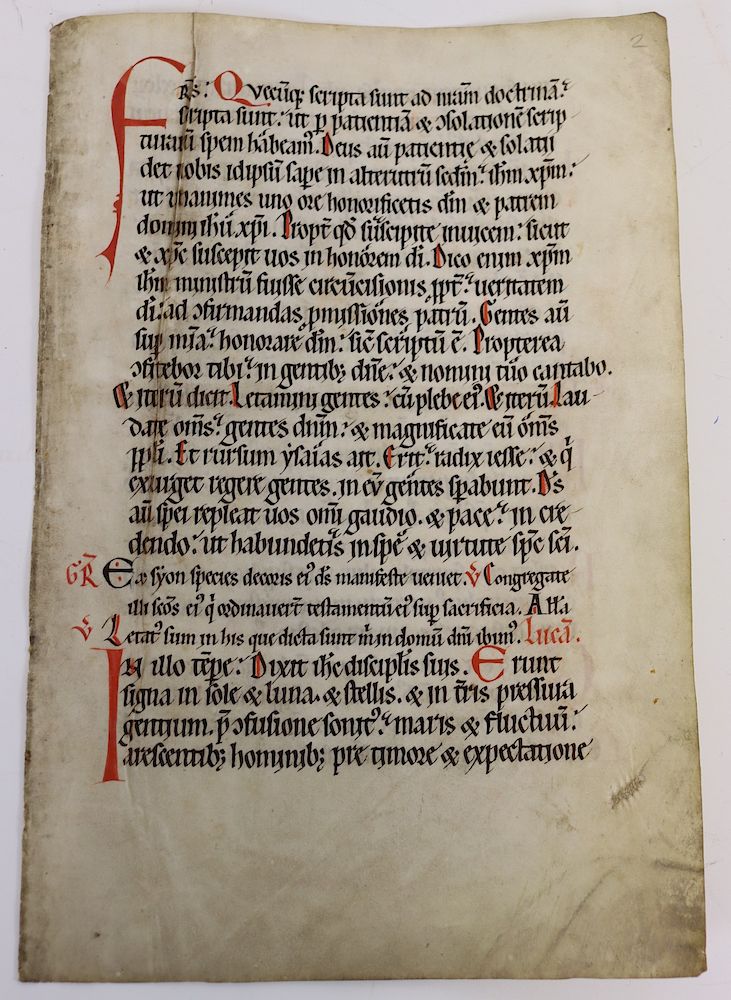 2
FRS: Quecūq; scripta sunt ad nr̄am doctrinā:
scripta sunt: ut p patientiā & ↄsolationē scrip-
turarū spem habeam⁹. Deus aū patientie & solatii
det uobis idipsū sapere in alterutrū sedm̄: ih̄m xp̄m:
ut unanimes uno ore honorificetis dm̄ & patrem
domini ih̄u xp̄i. Propt̄ qd̄ suscipite inuicem: sicut
& xp̄c suscepit uos in honorem dī. Dico enim xp̄m
ih̄m ministrū fuisse circūcisionis ꝓpt̄: ueritatem
dī: ad ↄfirmandas ꝓmissiones patrū. Gentes aū
sup mīa: honorare dm̄: sic̄ scriptū ē. Propterea
ↄfitebor tibi: in gentib; dn̄e: & nomini tuo cantabo.
& iterū dicit. Letamini gentes: cū plebe ei⁹. & iterū. Lau-
date om̄s: gentes dn̄m: & magnificate eū om̄s
ppl̄i. Et rursum ysaias ait. Erit: radix iesse: & q̇
exurget regere gentes. in eū gentes spabunt. D̄s
aū spei repleat uos omī gaudio. & pace: in cre-
dendo: ut habundetis in spe & uirtute sp̄c sc̄i.
GR̄ Ex syon species decoris ei⁹ d̄s manifeste ueniet. V Congregate
illi sc̄os ei⁹ q̇ ordinauert̄ testamentū ei⁹ sup sacrificia. Allā
V Letat⁹ sum in his que dicta sunt m̄ in domū dn̄i ibim⁹. Lucā.
In illo tēpe: Dixit ih̄c discipl̄is suis. Erunt
signa in sole & luna. & stellis. & in t̄ris pressura
gentium. p̄ ↄfusione sonit⁹: maris & fluctuū:
arescentib; hominib; pre timore & expectatione